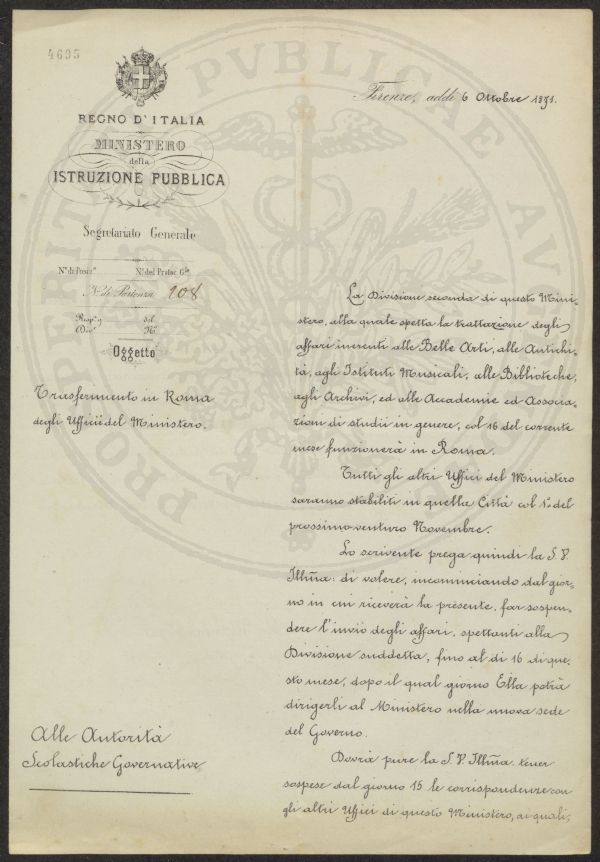 4695
Firenze, addì 6 Ottobre 1871.
REGNO D'ITALIA
MINISTERO
della
ISTRUZIONE PUBBLICA
Segretariato Generale
N.o di Posiz.e N.o del Protoc. G.le
N.o di Partenza 908
Risp.a del
Div.e N.o
Oggetto
Trasferimento in Roma
degli Ufficii del Ministero.
La Divisione seconda di questo Mini-
stero, alla quale spetta la trattazione degli
affari inerenti alle Belle Arti, alle Antichi-
tà, agli Istituti Musicali, alle Biblioteche,
agli Archivi, ed alle Accademie ed Associa-
zioni di studii in genere, col 16 del corrente
mese funzionerà in Roma.
Tutti gli altri Uffici del Ministero
saranno stabiliti in quella Città col 1o del
prossimo venturo Novembre.
Lo scrivente prega quindi la S. V.
Illma: di volere, incominciando dal gior-
no in cui riceverà la presente, far sospen-
dere l'invio degli affari, spettanti alla
Divisione suddetta, fino al dì 16 di que-
sto mese, dopo il qual giorno Ella potrà
dirigerli al Ministero nella nuova sede
del Governo.
Dovrà pure la S. V. Illma. tener
sospese dal giorno 15 le corrispondenze con
gli altri Uffici di questo Ministero, ai quali,
Alle Autorità
Scolastiche Governative